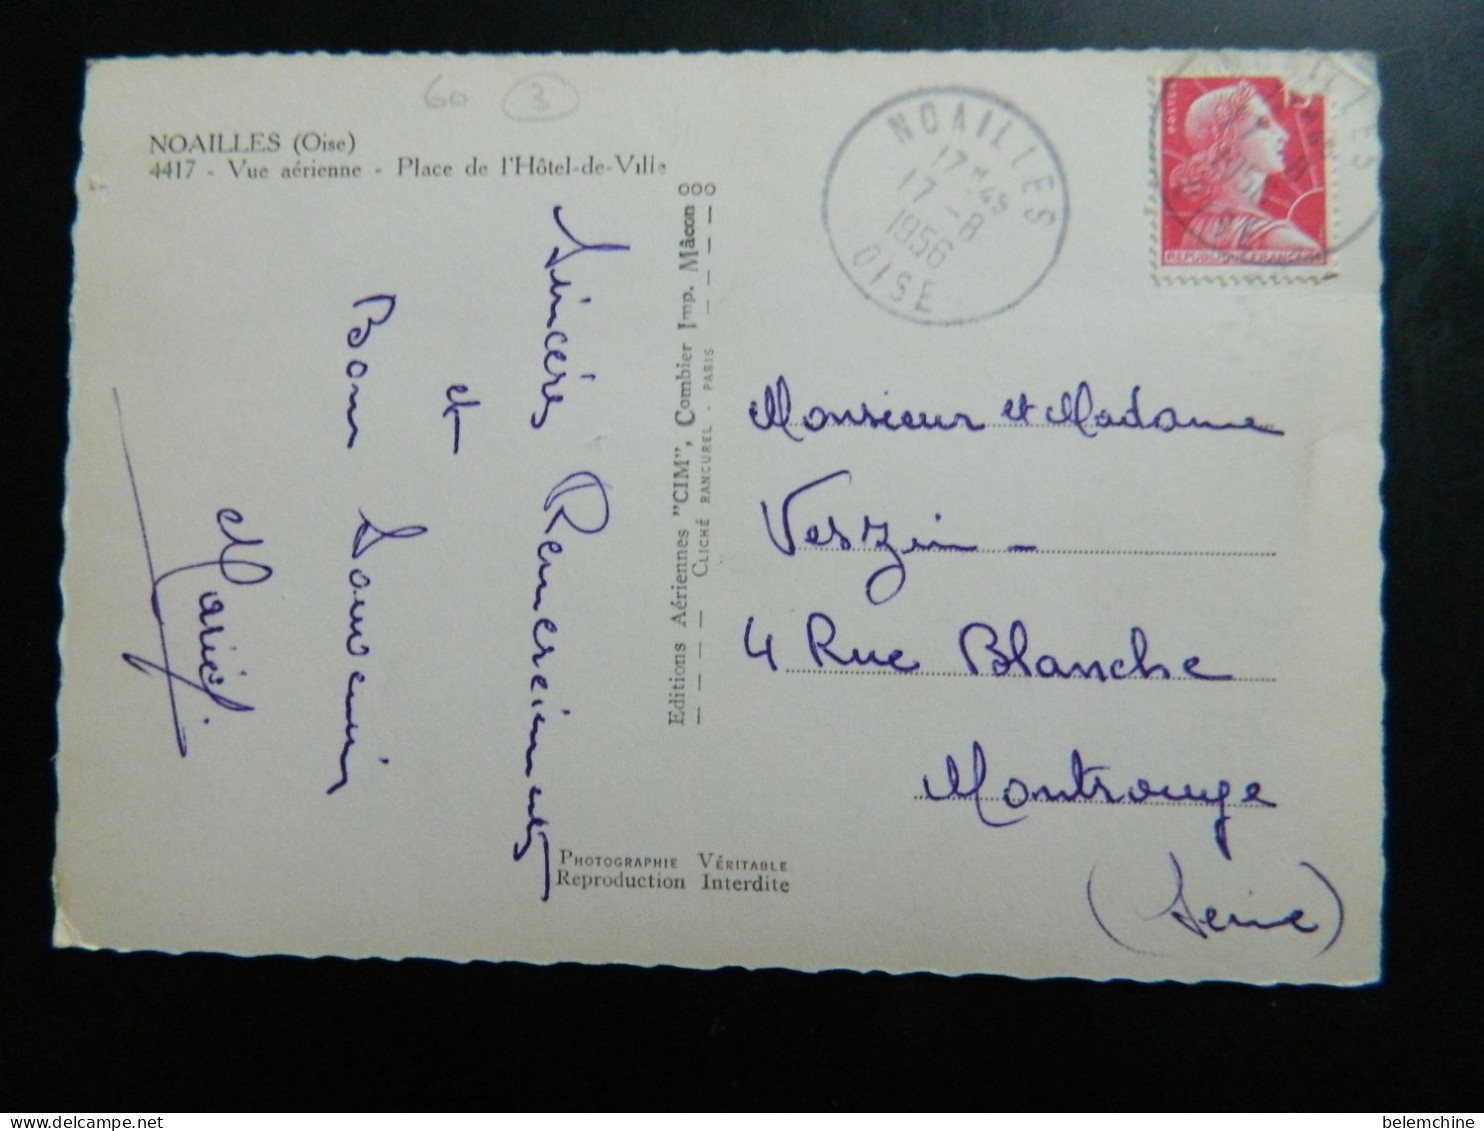 60 3
NOAILLES (Oise)
4417 - Vue aérienne - Place de l'Hôtel-de-Ville
Sincères Remerciements
et
Bon Souvenir
Editions Aériennes "CIM", Combier Imp. Mâcon
CLICHÉ RANCUREL - PARIS
PHOTOGRAPHIE VÉRITABLE
Reproduction Interdite
NOAILLES
17 H 45
17 - 8
1956
OISE
POSTES
15
REPUBLIQUE FRANÇAISE
Monsieur et Madame
Verzin -
4 Rue Blanche
Montrouge
(Seine)
belemchine